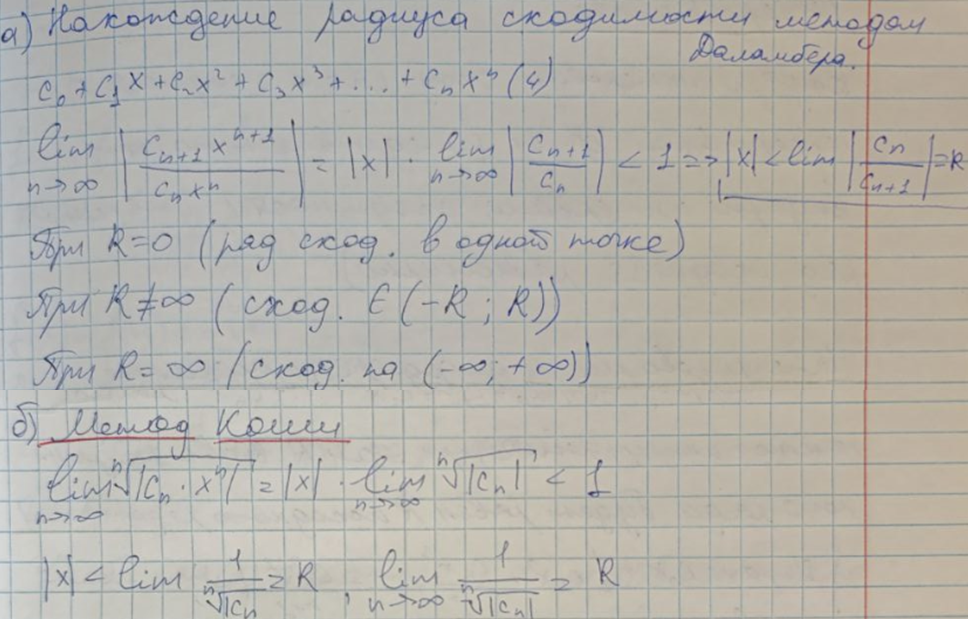 а) Нахождение радиуса сходимости методом
Даламбера.
c₀ + c₁x + c₂x² + c₃x³ + .... + cₙxⁿ (4)
lim n→∞ |cₙ₊₁xⁿ⁺¹ / cₙxⁿ| = |x| · lim n→∞ |cₙ₊₁ / cₙ| < 1 => |x| < lim |cₙ / cₙ₊₁| = R
При R=0 (ряд сход. в одной точке)
При R≠∞ (сход. ∈ (-R; R))
При R=∞ (сход. на (-∞; +∞))
б) Метод Коши
lim n→∞ ⁿ√|cₙ · xⁿ| = |x| · lim n→∞ ⁿ√|cₙ| < 1
|x| < lim 1 / ⁿ√|cₙ = R, lim n→∞ 1 / ⁿ√|cₙ| = R